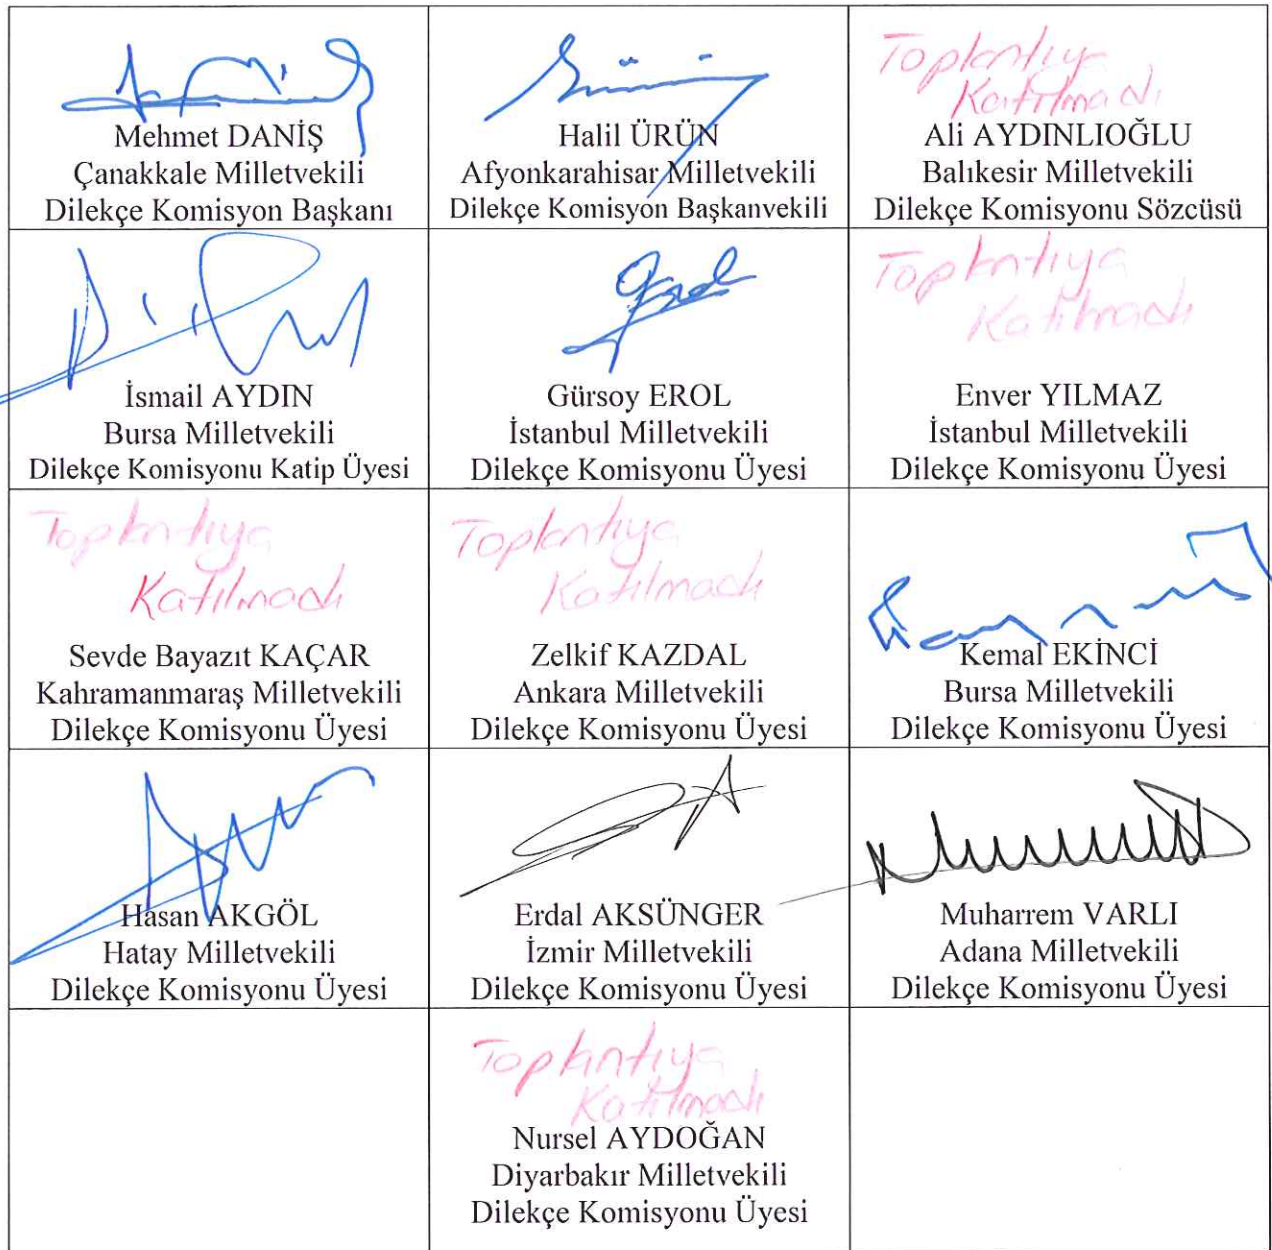 Mehmet DANİŞ
Çanakkale Milletvekili
Dilekçe Komisyon Başkanı
Halil ÜRÜN
Afyonkarahisar Milletvekili
Dilekçe Komisyon Başkanvekili
Toplantıya
Katılmadı
Ali AYDINLIOĞLU
Balıkesir Milletvekili
Dilekçe Komisyonu Sözcüsü
İsmail AYDIN
Bursa Milletvekili
Dilekçe Komisyonu Katip Üyesi
Gürsoy EROL
İstanbul Milletvekili
Dilekçe Komisyonu Üyesi
Toplantıya
Katılmadı
Enver YILMAZ
İstanbul Milletvekili
Dilekçe Komisyonu Üyesi
Toplantıya
Katılmadı
Sevde Bayazıt KAÇAR
Kahramanmaraş Milletvekili
Dilekçe Komisyonu Üyesi
Toplantıya
Katılmadı
Zelkif KAZDAL
Ankara Milletvekili
Dilekçe Komisyonu Üyesi
Kemal EKİNCİ
Bursa Milletvekili
Dilekçe Komisyonu Üyesi
Hasan AKGÖL
Hatay Milletvekili
Dilekçe Komisyonu Üyesi
Erdal AKSÜNGER
İzmir Milletvekili
Dilekçe Komisyonu Üyesi
Muharrem VARLI
Adana Milletvekili
Dilekçe Komisyonu Üyesi
Toplantıya
Katılmadı
Nursel AYDOĞAN
Diyarbakır Milletvekili
Dilekçe Komisyonu Üyesi